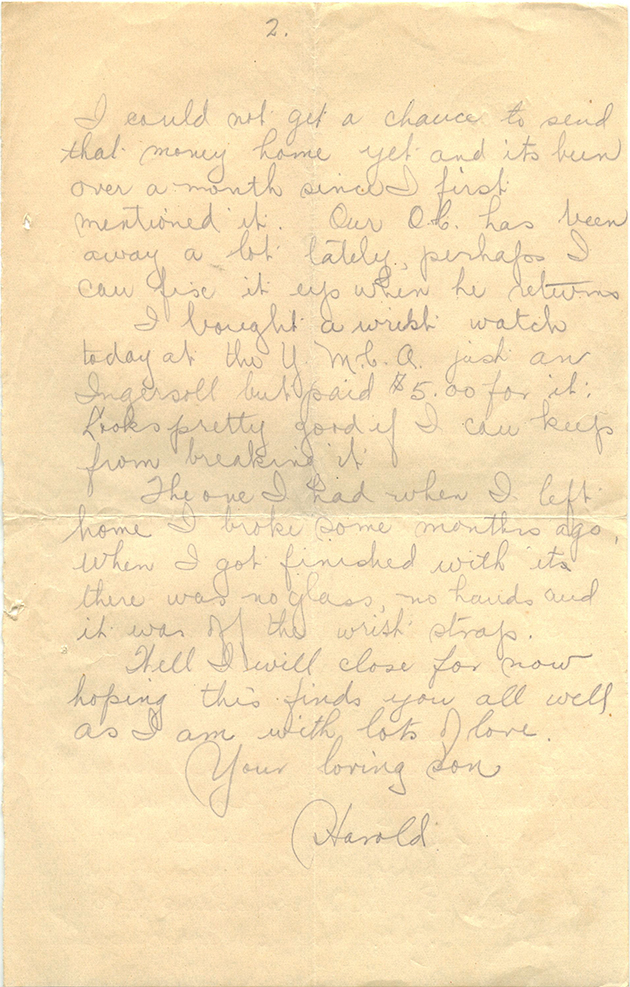 2.
I could not get a chance to send
that money home yet and its been
over a month since I first
mentioned it. Our O.C. has been
away a lot lately, perhaps I
can fix it up when he returns
I bought a wrist watch
today at the Y.M.C.A. just an
Ingersoll but paid $5.00 for it.
Looks pretty good if I can keep
from breaking it
The one I had when I left
home I broke some months ago,
when I got finished with it
there was no glass, no hands and
it was off the wrist strap.
Well I will close for now
hoping this finds you all well
as I am with lots of love.
Your loving son
Harold